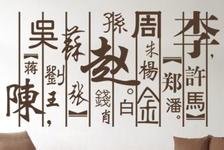 吳
[蔣]
陳
蘇
劉
王，
張
孫
趙
錢
肖
。白
周
朱
楊
金
【鄭】
潘。
李，
許
馬